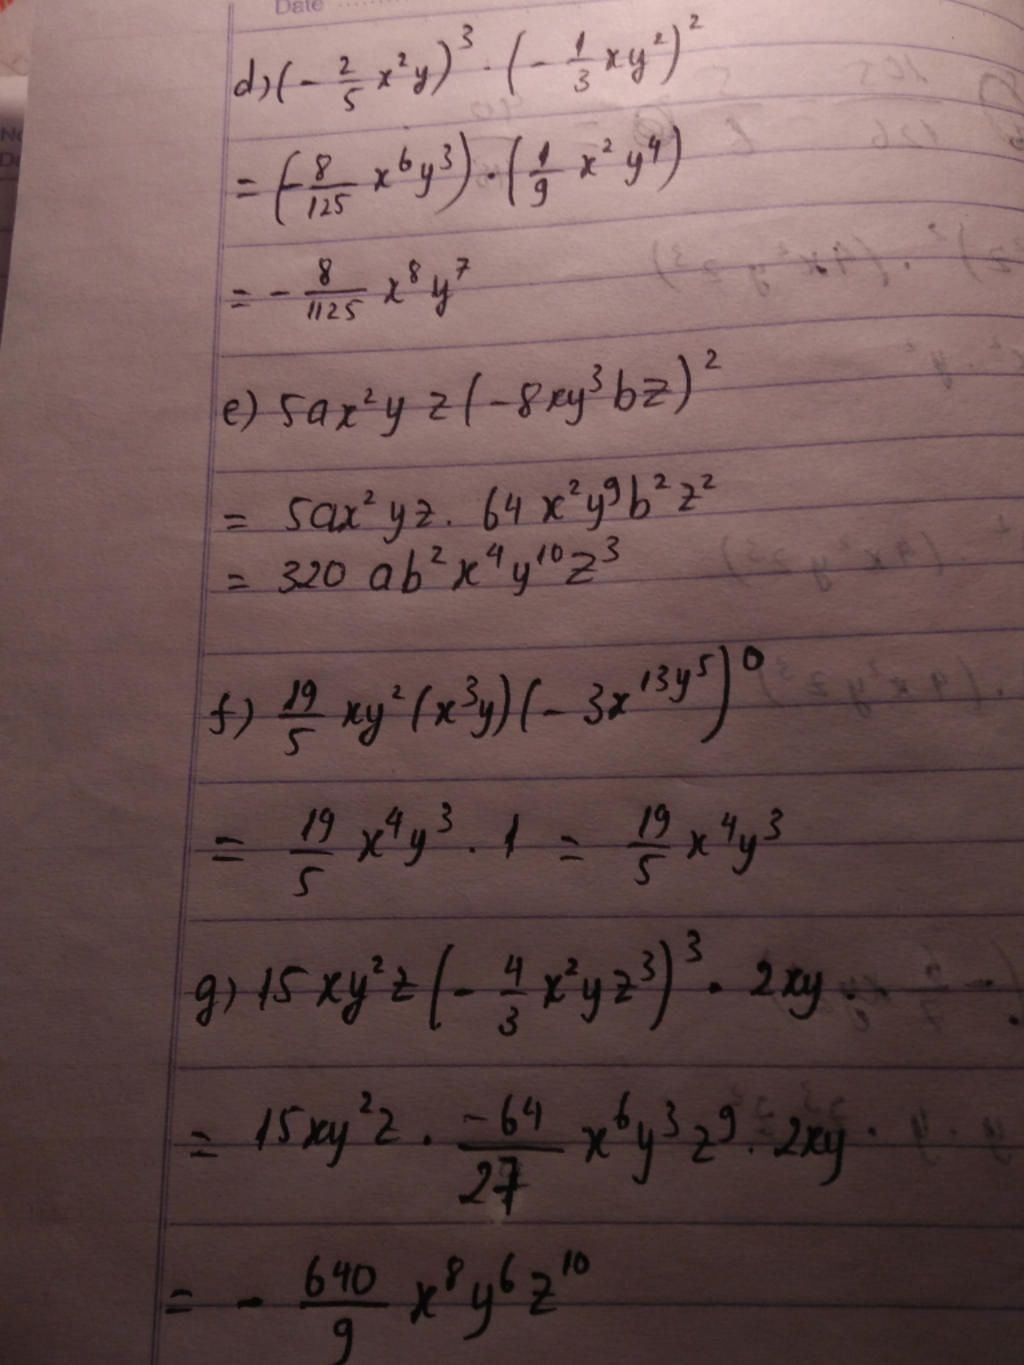 Date
d) (- 2/5 x²y)³ · (- 1/3 xy²)²
= (- 8/125 x⁶y³) · (1/9 x² y⁴)
= - 8/1125 x⁸y⁷
e) 5ax²y z(-8xy³bz)²
= 5ax²yz · 64 x²y⁹b²z²
= 320 ab²x⁴y¹⁰z³
f) 19/5 xy²(x³y)(-3x¹³y⁵)⁰
= 19/5 x⁴y³ · 1 = 19/5 x⁴y³
g) 15xy²z(- 4/3 x²yz³)³ · 2xy
= 15xy²z · -64/27 x⁶y³z⁹ · 2xy
= - 640/9 x⁸y⁶z¹⁰